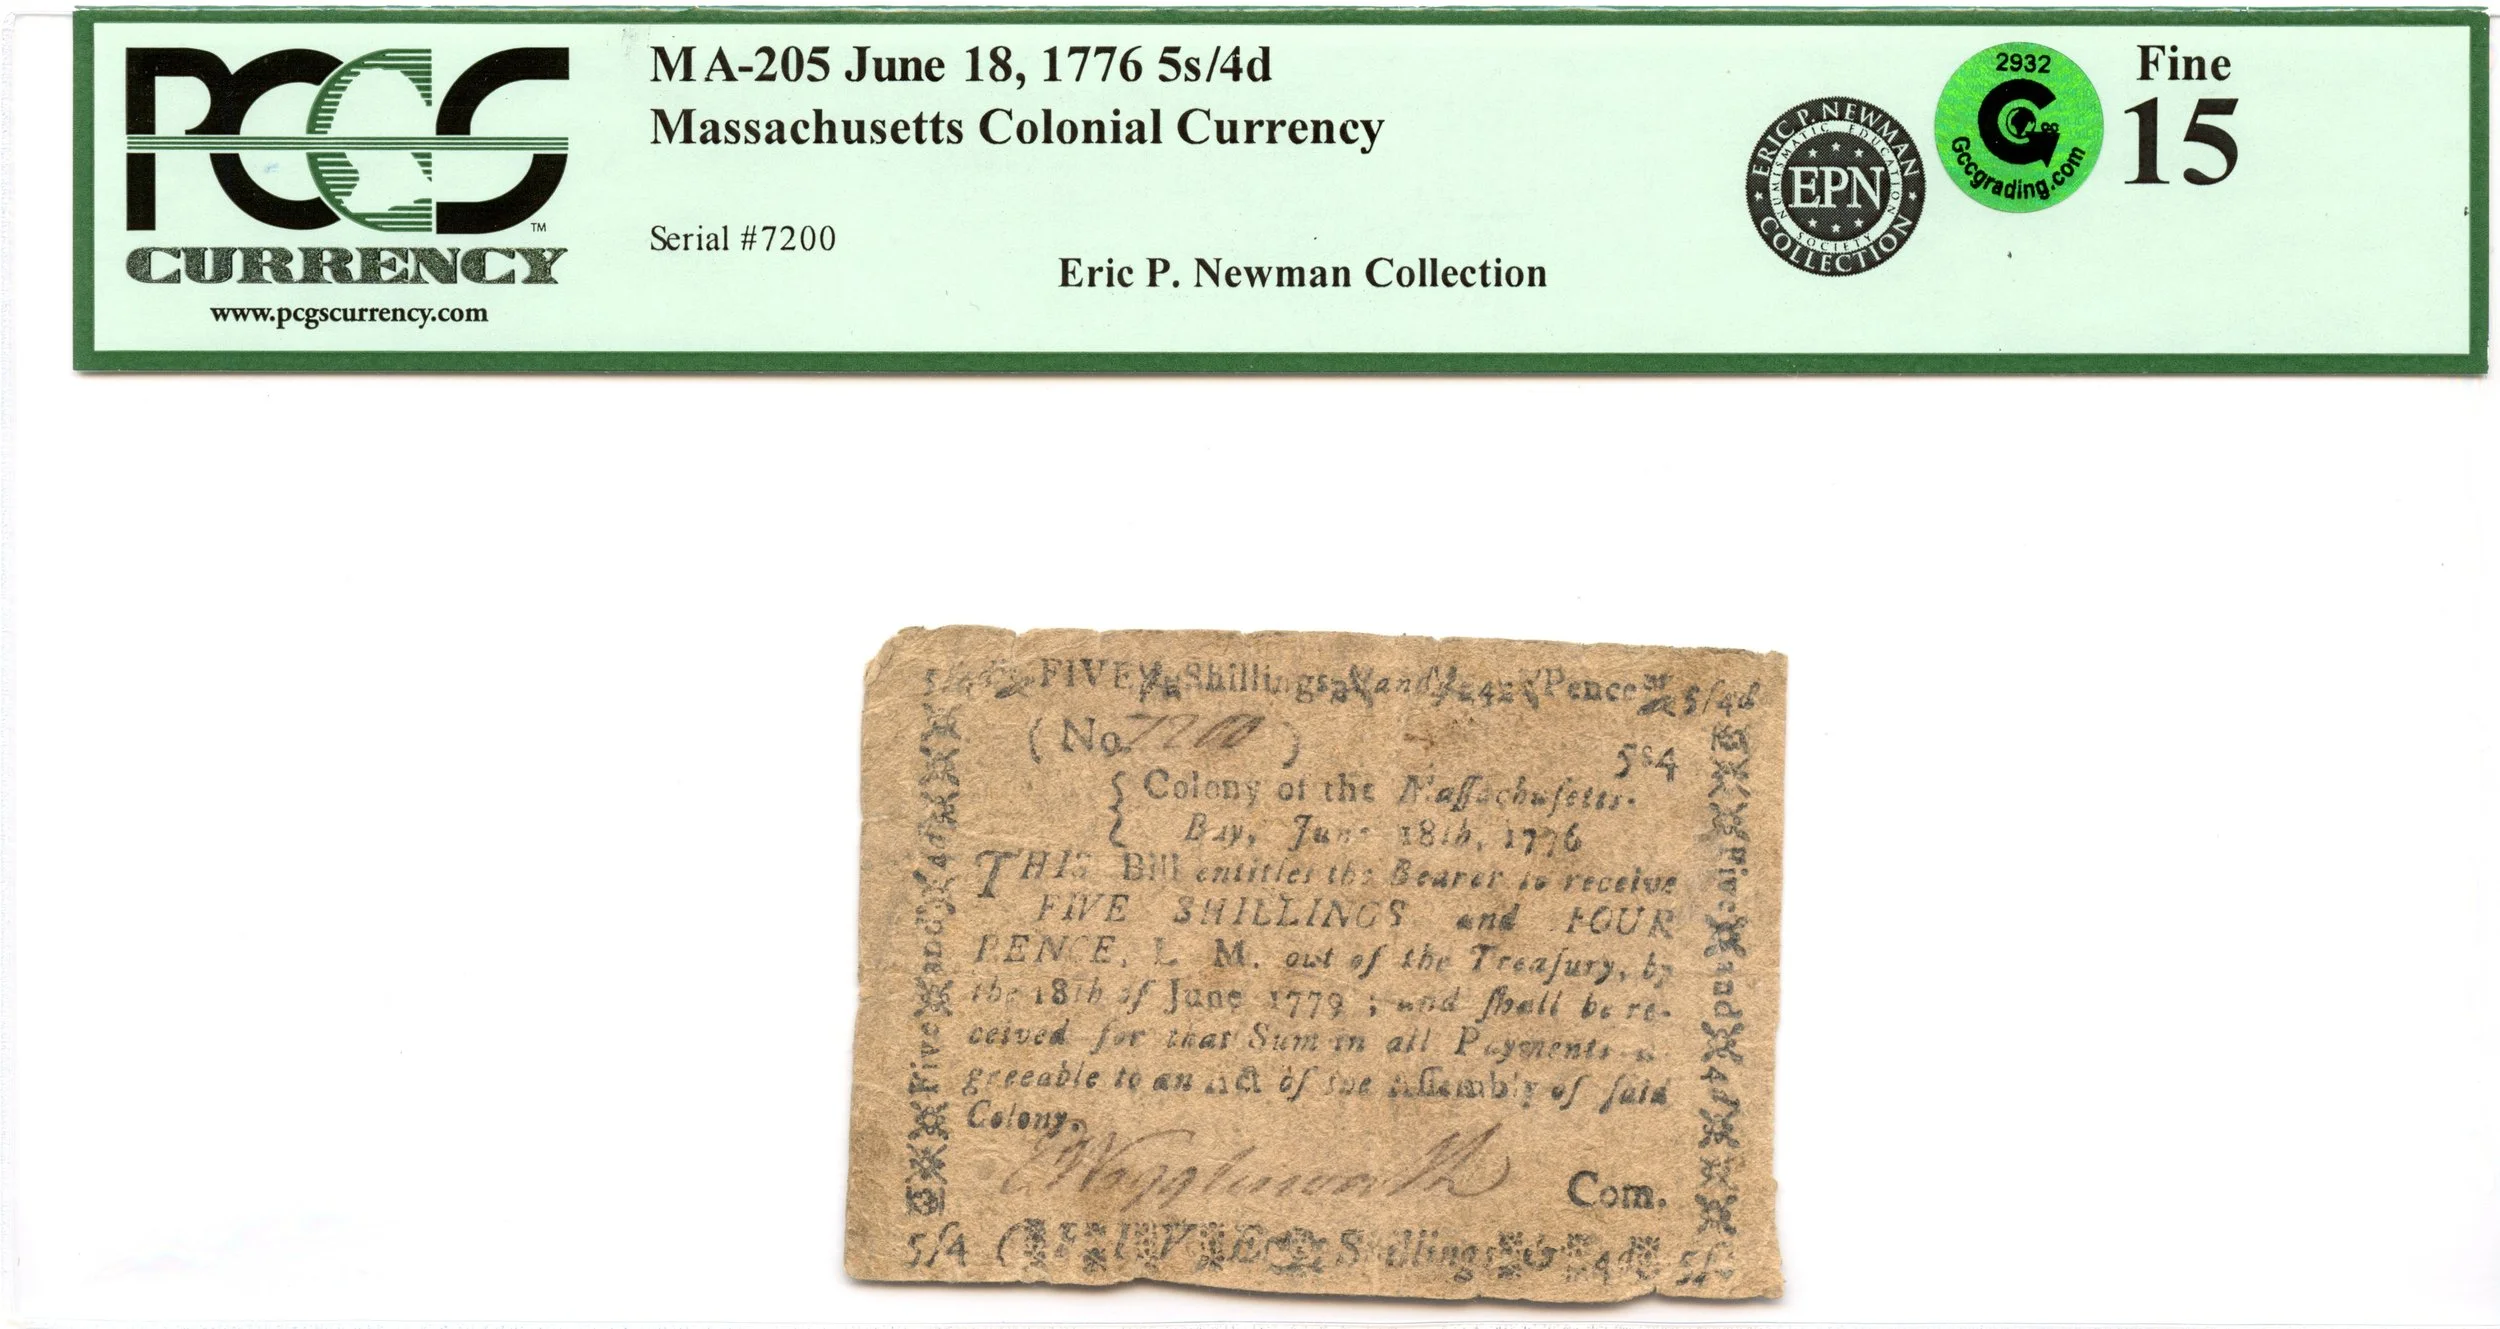 PCGS
CURRENCY
www.pcgscurrency.com
MA-205 June 18, 1776 5s/4d
Massachusetts Colonial Currency
Serial #7200
Eric P. Newman Collection
ERIC P. NEWMAN
NUMISMATIC EDUCATION
EPN
SOCIETY
COLLECTION
2932
Gccgrading.com
Fine
15
FIVE Shillings and Pence 5/4d
(No. 7200)
5s4
Colony of the Massachusetts-
Bay, June 18th, 1776
THIS Bill entitles the Bearer to receive
FIVE SHILLINGS and FOUR
PENCE, L. M. out of the Treasury, by
the 18th of June 1779; and shall be re-
ceived for that Sum in all Payments a-
greeable to an Act of the Assembly of said
Colony.
Wigglesworth Com.
5/4 FIVE Shillings & 4d 5/
Five and 4d
Five and 4d